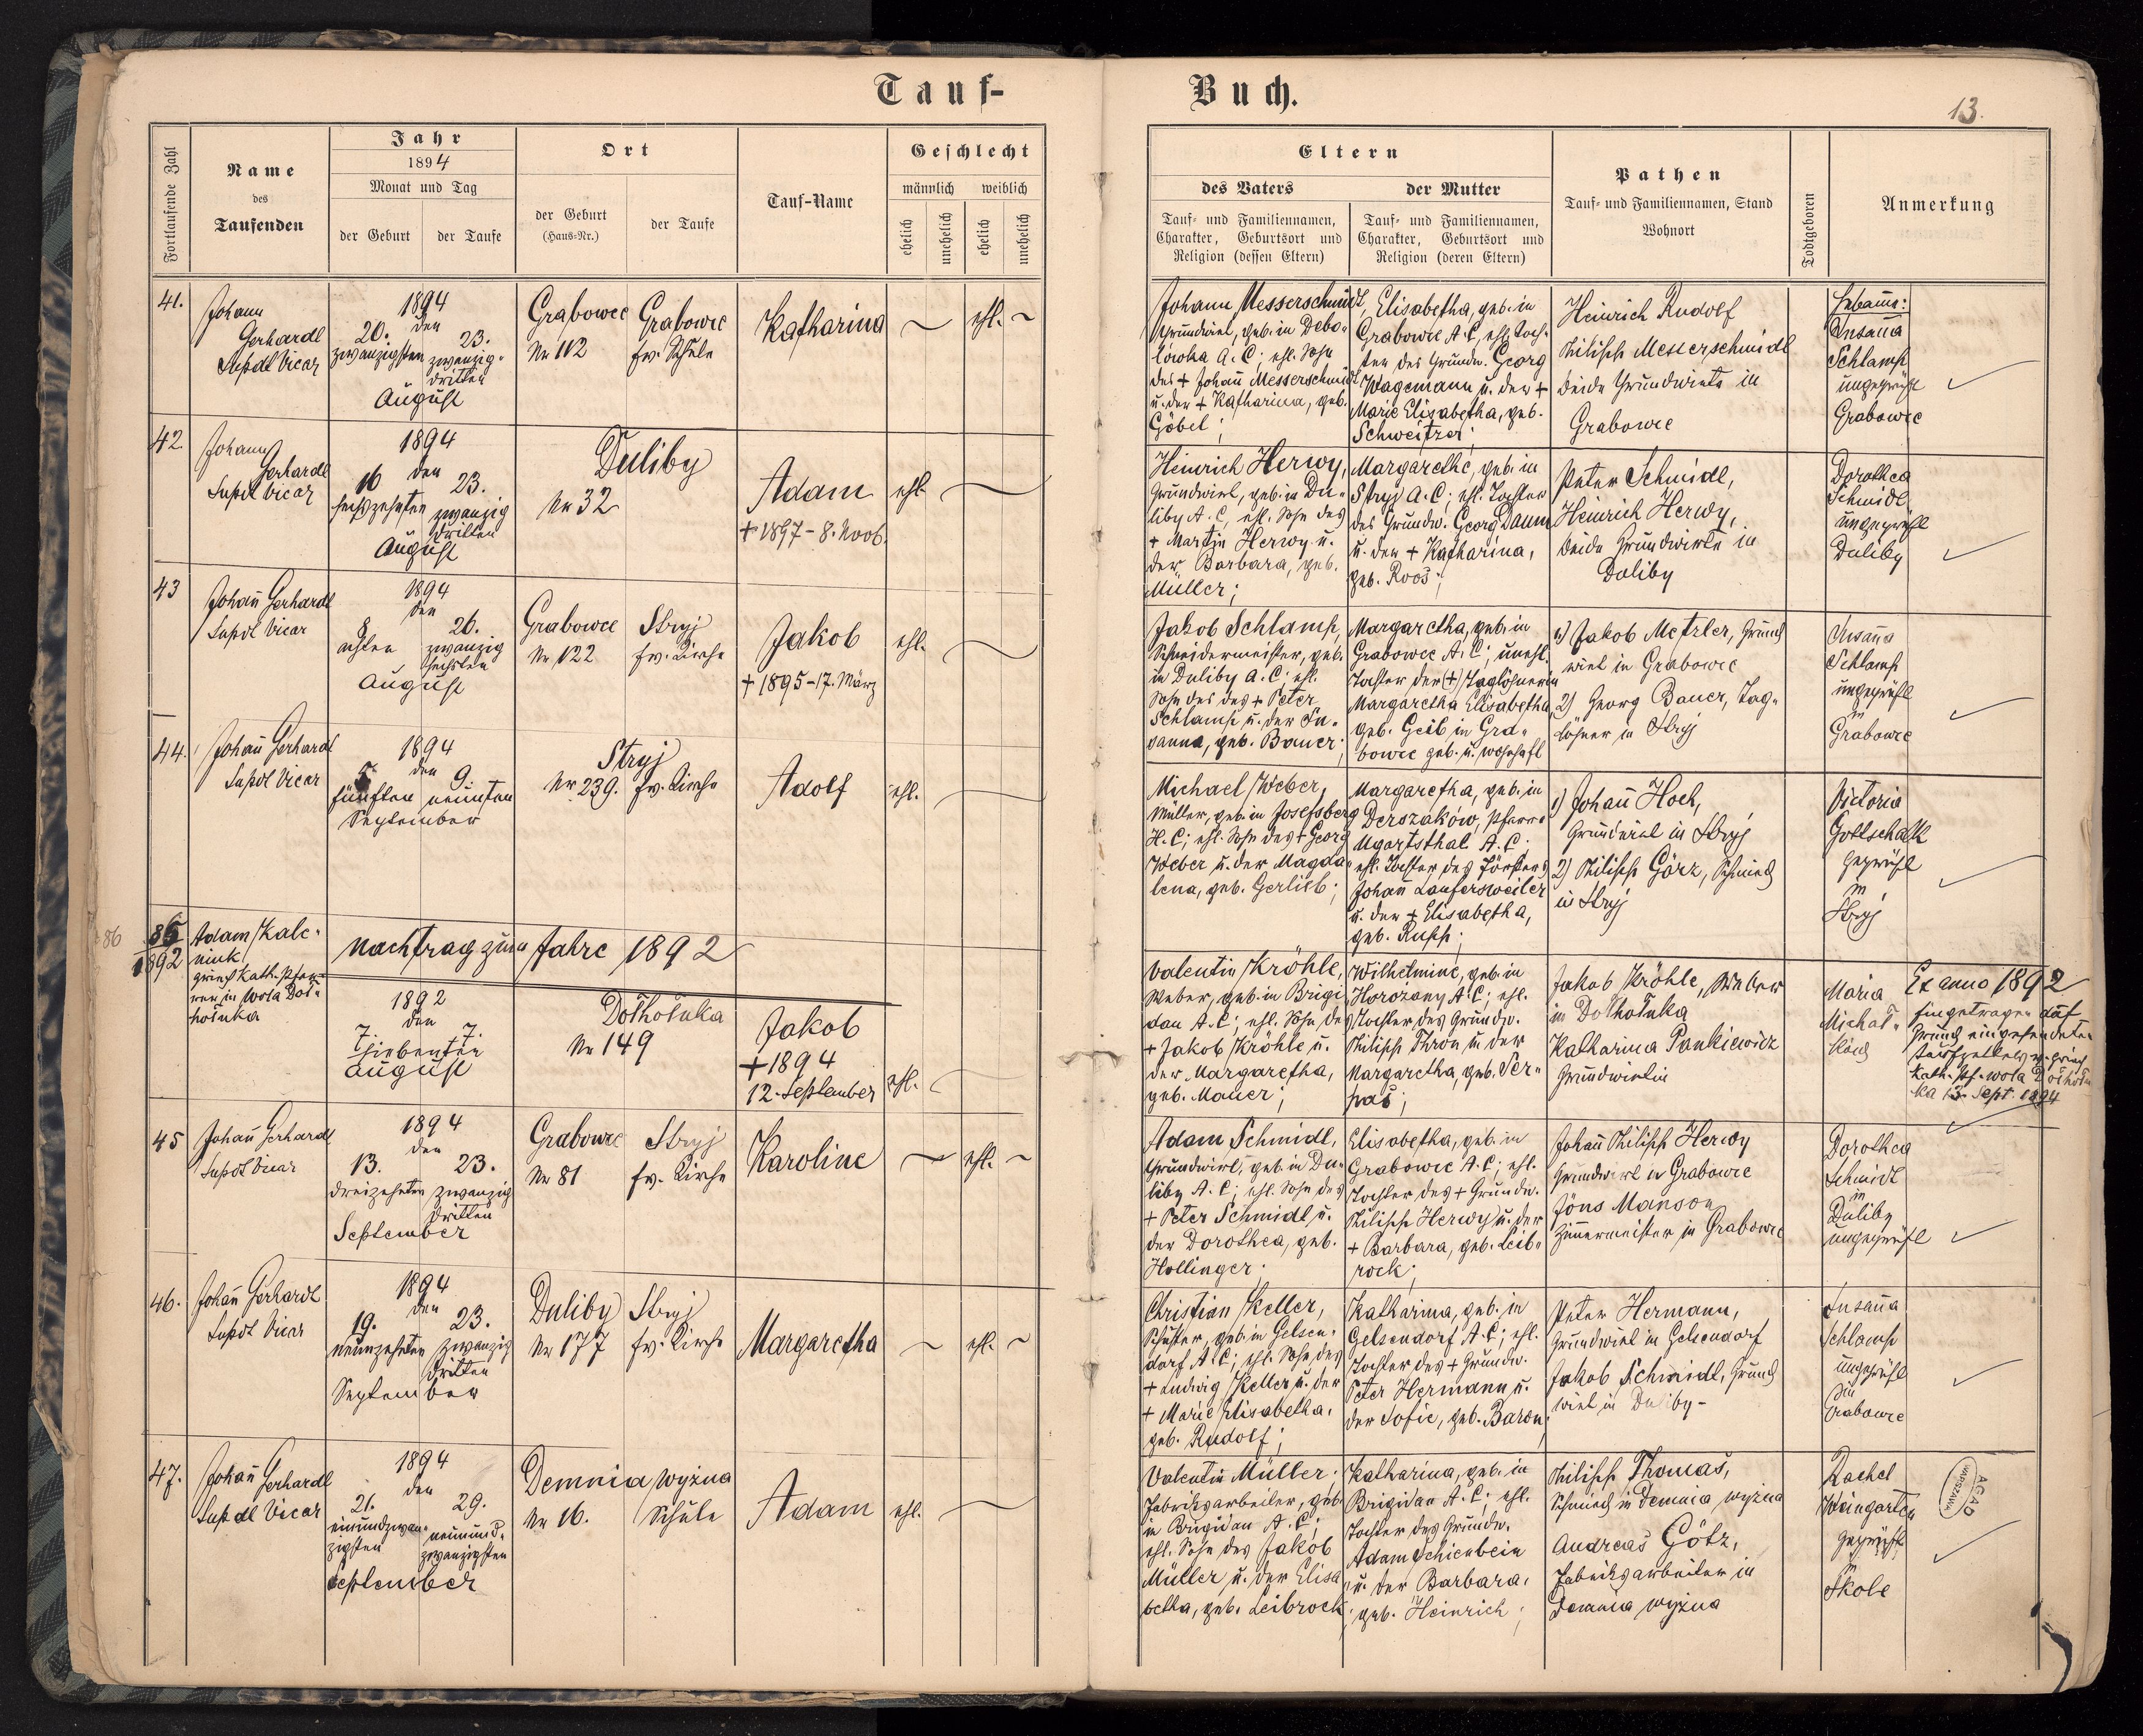 Tauf-
Buch.
13.
Fortlaufende Zahl
Name
des
Taufenden
Jahr
1894
Monat und Tag
der Geburt
der Taufe
Ort
der Geburt
(Haus-Nr.)
der Taufe
Tauf-Name
Geschlecht
männlich weiblich
ehelich
unehelich
ehelich
unehelich
Eltern
des Vaters
Tauf- und Familiennamen,
Charakter, Geburtsort und
Religion (dessen Eltern)
der Mutter
Tauf- und Familiennamen,
Charakter, Geburtsort und
Religion (deren Eltern)
Pathen
Tauf- und Familiennamen, Stand
Wohnort
Todtgeboren
Anmerkung
41.
Johann
Gerhardt
Supdt Vicar
1894
den
20. 23.
zwanzigsten zwanzig-
dritten
August
Grabowce
Nr 112
Grabowce
ev. Schule
Katharina
ehl.
Johann Messerschmidt,
Grundwirt, geb. in Debo-
lówka A. C; ehl. Sohn
des + Johañ Messerschmidt
u. der + Katharina, geb.
Göbel;
Elisabetha, geb. in
Grabowce A. C, ehl. Toch-
ter des Grundw. Georg
Wagemann u. der +
Marie Elisabetha, geb.
Schweitzer;
Heinrich Rudolf
Philipp Messerschmidt
beide Grundwirte in
Grabowce
Hebame:
Susaña
Schlamp
ungeprüft
Grabowce
42
Johann
Gerhardt
Supdt Vicar
1894
16 den 23.
sechszehnten zwanzig
dritten
August
Duliby
Nr 32
Adam
+ 1897 - 8. Novb.
ehl.
Heinrich Herwy,
Grundwirt, geb. in Du-
liby A. C, ehl. Sohn des
+ Martin Herwy u.
der Barbara, geb.
Müller;
Margarethe, geb. in
Stryj A. C; ehl. Tochter
des Grundw. Georg Daum
u. der + Katharina,
geb. Roos;
Peter Schmidt,
Heinrich Herwy,
beide Grundwirte in
Duliby
Dorothea
Schmidt
ungeprüft
Duliby
43
Johañ Gerhardt
Supdt Vicar
1894
den
8 26.
achten zwanzig
sechsten
August
Grabowce
Nr 122
Stryj
ev. Kirche
Jakob
+ 1895 - 17. März
ehl.
Jakob Schlamp,
Schneidermeister, geb.
in Duliby A. C; ehl.
Sohn des des + Peter
Schlamp u. der Su-
sanna, geb. Bauer;
Margaretha, geb. in
Grabowce A. C; unehl.
Tochter der (+) Taglöhnerin
Margaretha Elisabetha
geb. Geib in Gra-
bowce geb. u. wohnhaft
1) Jakob Metzler, Grund
wirt in Grabowce
2) Georg Bauer, Tag-
löhner in Stryj
Susaña
Schlamp
ungeprüft
in
Grabowce
44.
Johañ Gerhardt
Supdt Vicar
1894
5. den 9.
fünften neunten
September
Stryj
Nr 239. ev. Kirche
Adolf
ehl.
Michael Weber,
Müller, geb. in Josefsberg
H. C; ehl. Sohn des + Georg
Weber u. der Magda-
lena, geb. Gerlieb;
Margaretha, geb. in
Derszaków, Pfarre
Ugartsthal A. C;
ehl. Tochter des Försters
Johañ Laufersweiler
u. der + Elisabetha,
geb. Rupp;
1) Johañ Hoch,
Grundwirt in Stryj
2) Philipp Görz, Schmied
in Stryj
Victoria
Gottschalk
geprüft
in
Stryj
86
86
1892
Adam Kale-
niuk
griech. kath. Pfar-
rer in Wola Doł-
hołuka
Nachtrag zum Jahre 1892
1892
den
7. 7.
siebenten
August
Dołhołuka
Nr 149
Jakob
+ 1894
12. September
ehl.
Valentin Kröhle,
Weber, geb. in Brigi
dau A. C; ehl. Sohn des
+ Jakob Kröhle u.
der Margaretha,
geb. Mauer;
Wilhelmine, geb. in
Horożany A. C; ehl.
Tochter des Grundw.
Philipp Thron u. der
Margaretha, geb. Ser-
pas;
Jakob Kröhle, Weber
in Dołhołuka
Katharina Pankiewicz
Grundwirtin
Maria
Michał-
ków
Ex anno 1892
Eingetragen auf
Grund eingesendeten
Taufzettels v. griech
kath. Pf. Wola Dołhołu
ka 13. Sept. 1894
45
Johañ Gerhardt
Supdt Vicar
1894
den
13. 23.
dreizehnten zwanzig
dritten
September
Grabowce
Nr 81
Stryj
ev. Kirche
Karoline
ehl.
Adam Schmidt,
Grundwirt, geb. in Du-
liby A. C; ehl. Sohn des
+ Peter Schmidt u.
der Dorothea, geb.
Hollinger;
Elisabetha, geb. in
Grabowce A. C; ehl.
Tochter des + Grundw.
Philipp Herwy u. der
+ Barbara, geb. Leib-
rock;
Johañ Philipp Herwy
Grundwirt in Grabowce
Jöns Manson
Zimermeister in Grabowce
Dorothea
Schmidt
in
Duliby
ungeprüft
46.
Johañ Gerhardt
Supdt Vicar
1894
den
19. 23.
neunzehnten zwanzig
dritten
September
Duliby
Nr 177
Stryj
ev. Kirche
Margaretha
ehl.
Christian Keller,
Schuster, geb. in Gelsen-
dorf A. C; ehl. Sohn des
+ Ludwig Keller u. der
+ Marie Elisabetha,
geb. Rudolf;
Katharina, geb. in
Gelsendorf A. C; ehl.
Tochter des + Grundw.
Peter Hermann u.
der Sofie, geb. Baron;
Peter Hermann,
Grundwirt in Gelsendorf
Jakob Schmidt, Grund
wirt in Duliby -
Susaña
Schlamp
ungeprüft
in
Grabowce
47.
Johañ Gerhardt
Supdt Vicar
1894
den
21. 29.
einundzwan- neunund-
zigsten zwanzigsten
September
Demnia wyżna
Nr 16. Schule
Adam
ehl.
Valentin Müller
Fabriksarbeiter, geb.
in Brigidau A. C;
ehl. Sohn des Jakob
Müller u. der Elisa
betha, geb. Leibrock;
Katharina, geb. in
Brigidau A. C; ehl.
Tochter des Grundw.
Adam Schienbein
u. der Barbara,
geb. Heinrich;
Philipp Thomas,
Schmied in Demnia wyżna
Andreas Götz,
Fabriksarbeiter in
Demnia wyżna
Rachel
Weingarten
geprüft
in
Skole
AGAD
WARSZAWA